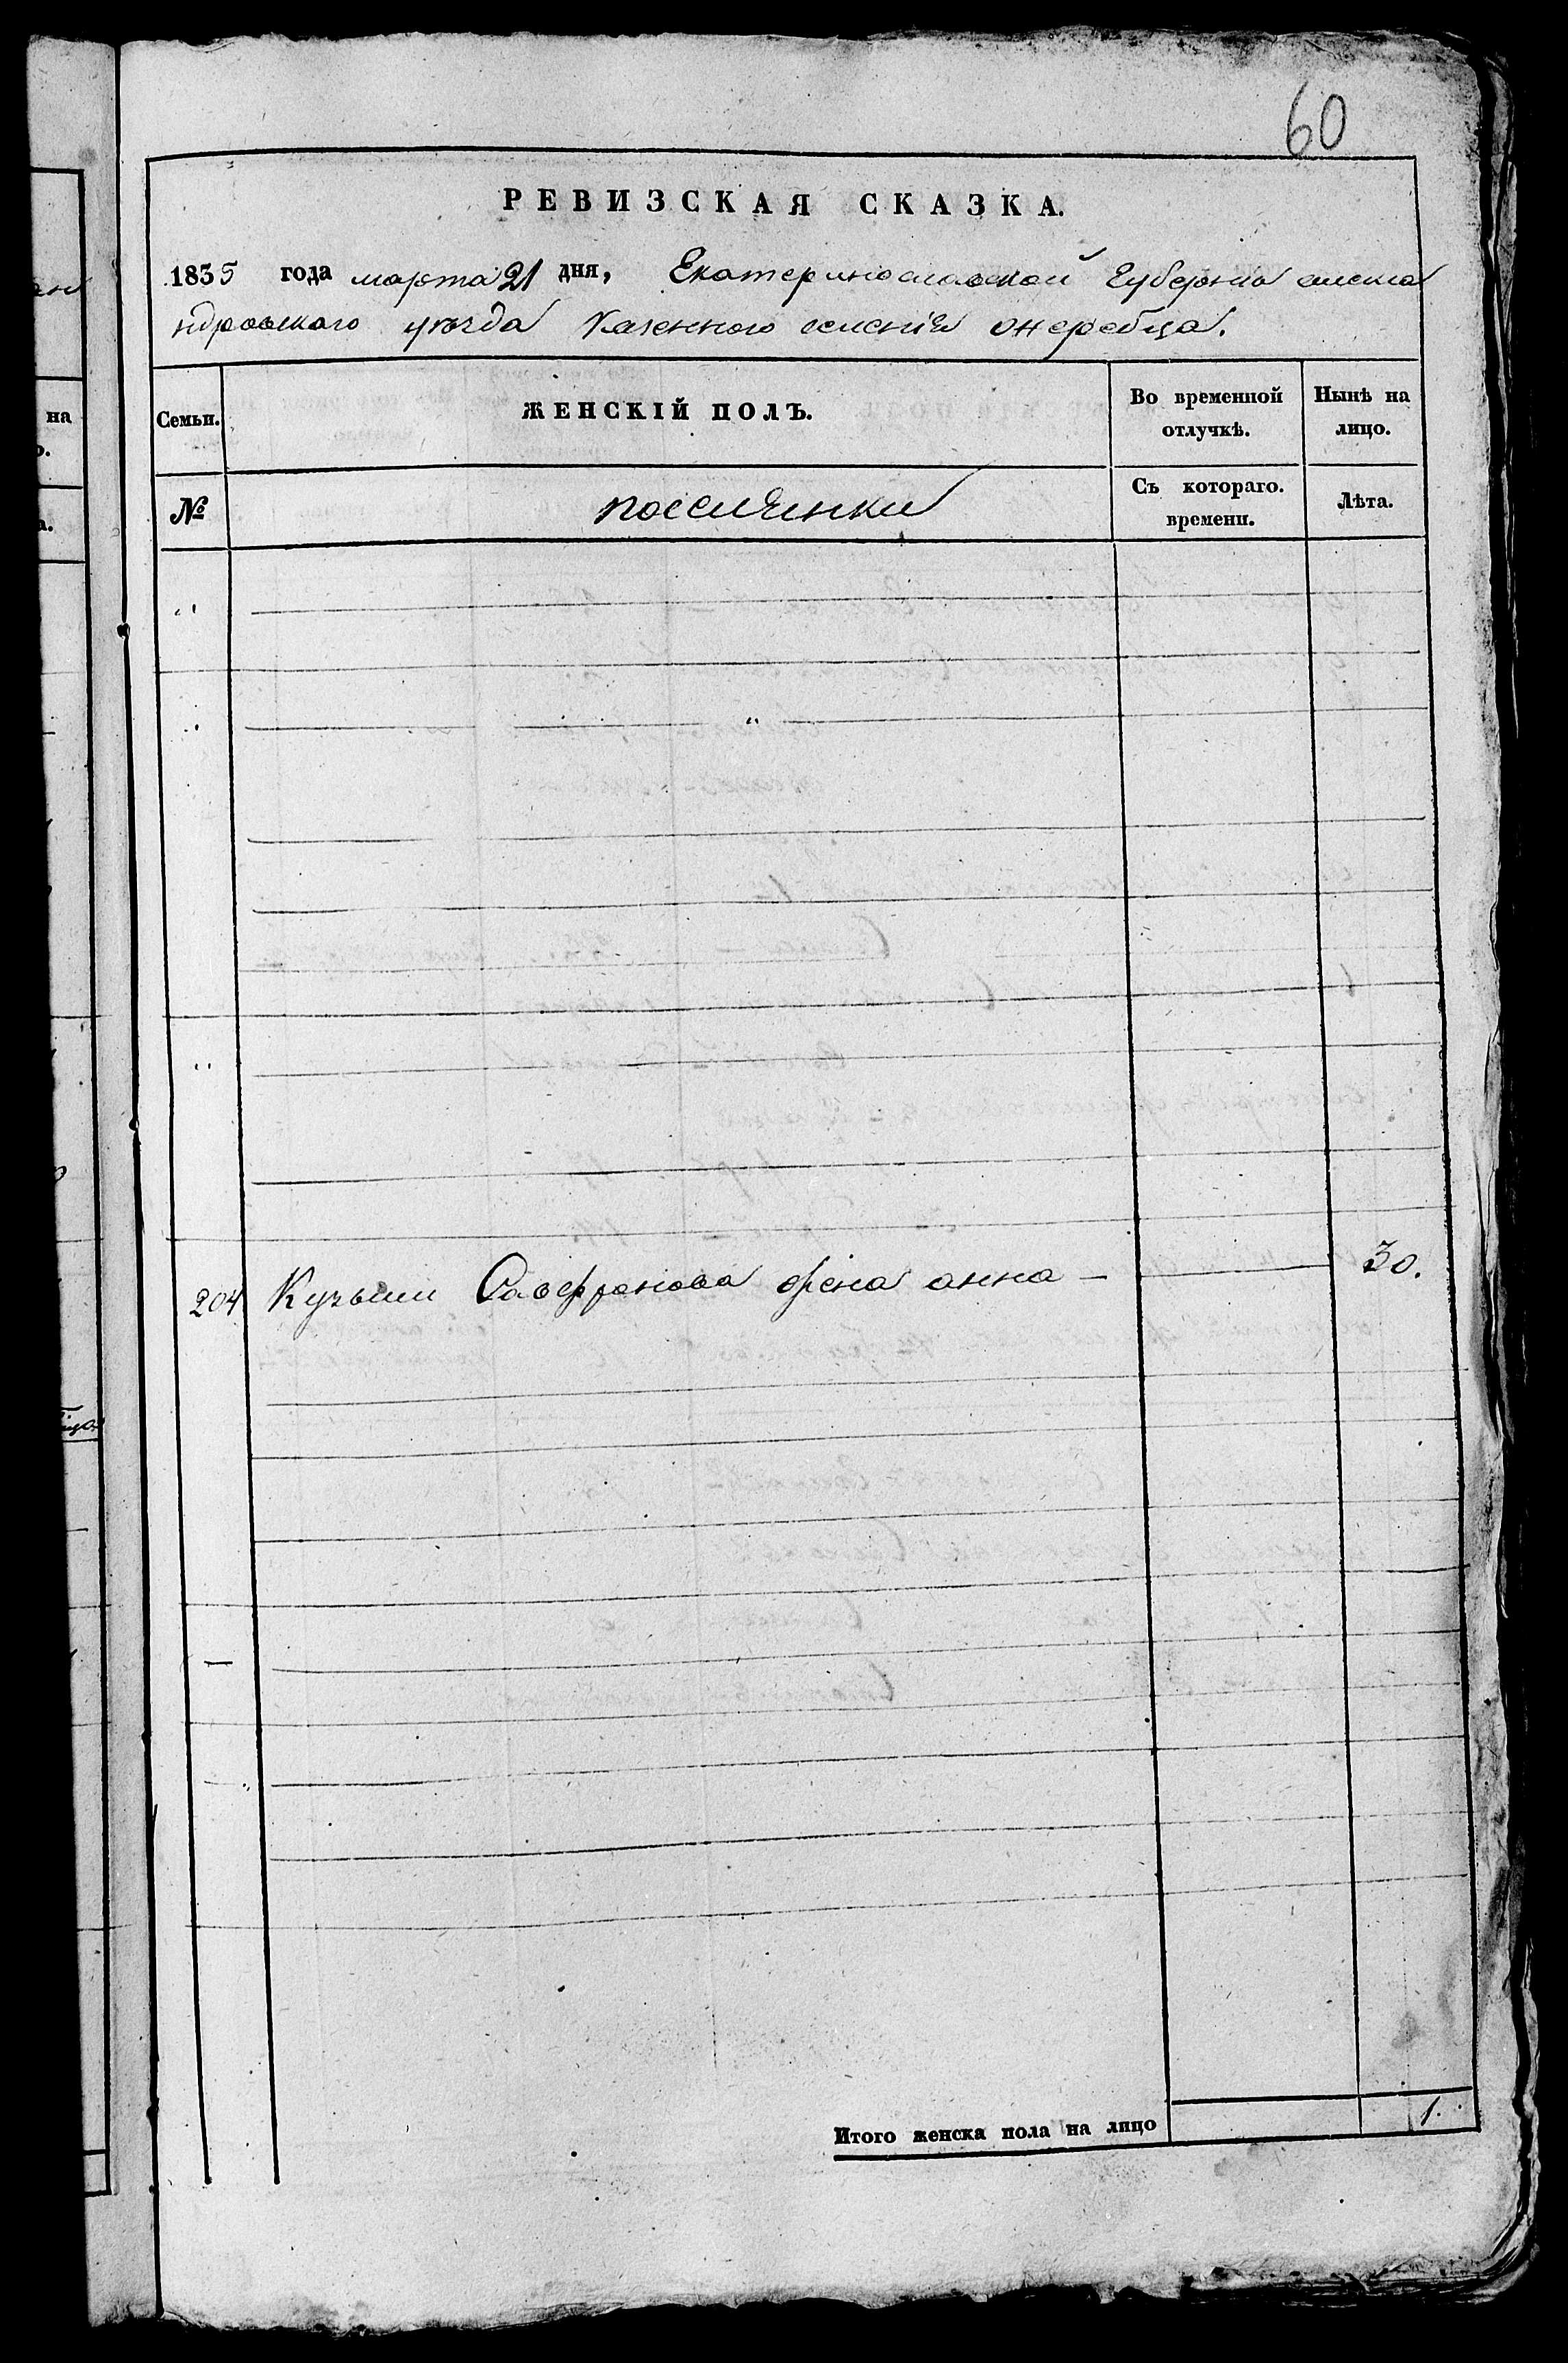 60
РЕВИЗСКАЯ СКАЗКА.
1835 года марта 21 дня, Екатеринославской Губернии алекса
ндровского уѣзда Казенного селенія Жеребца.
Семьи.
ЖЕНСКІЙ ПОЛЪ.
Во временной отлучкѣ.
Нынѣ на лицо.
№
поселянки
Съ котораго. времени.
Лѣта.
204 Кузьмы Сафронова жена анна — 30.
Итого женска пола на лицо 1.
на